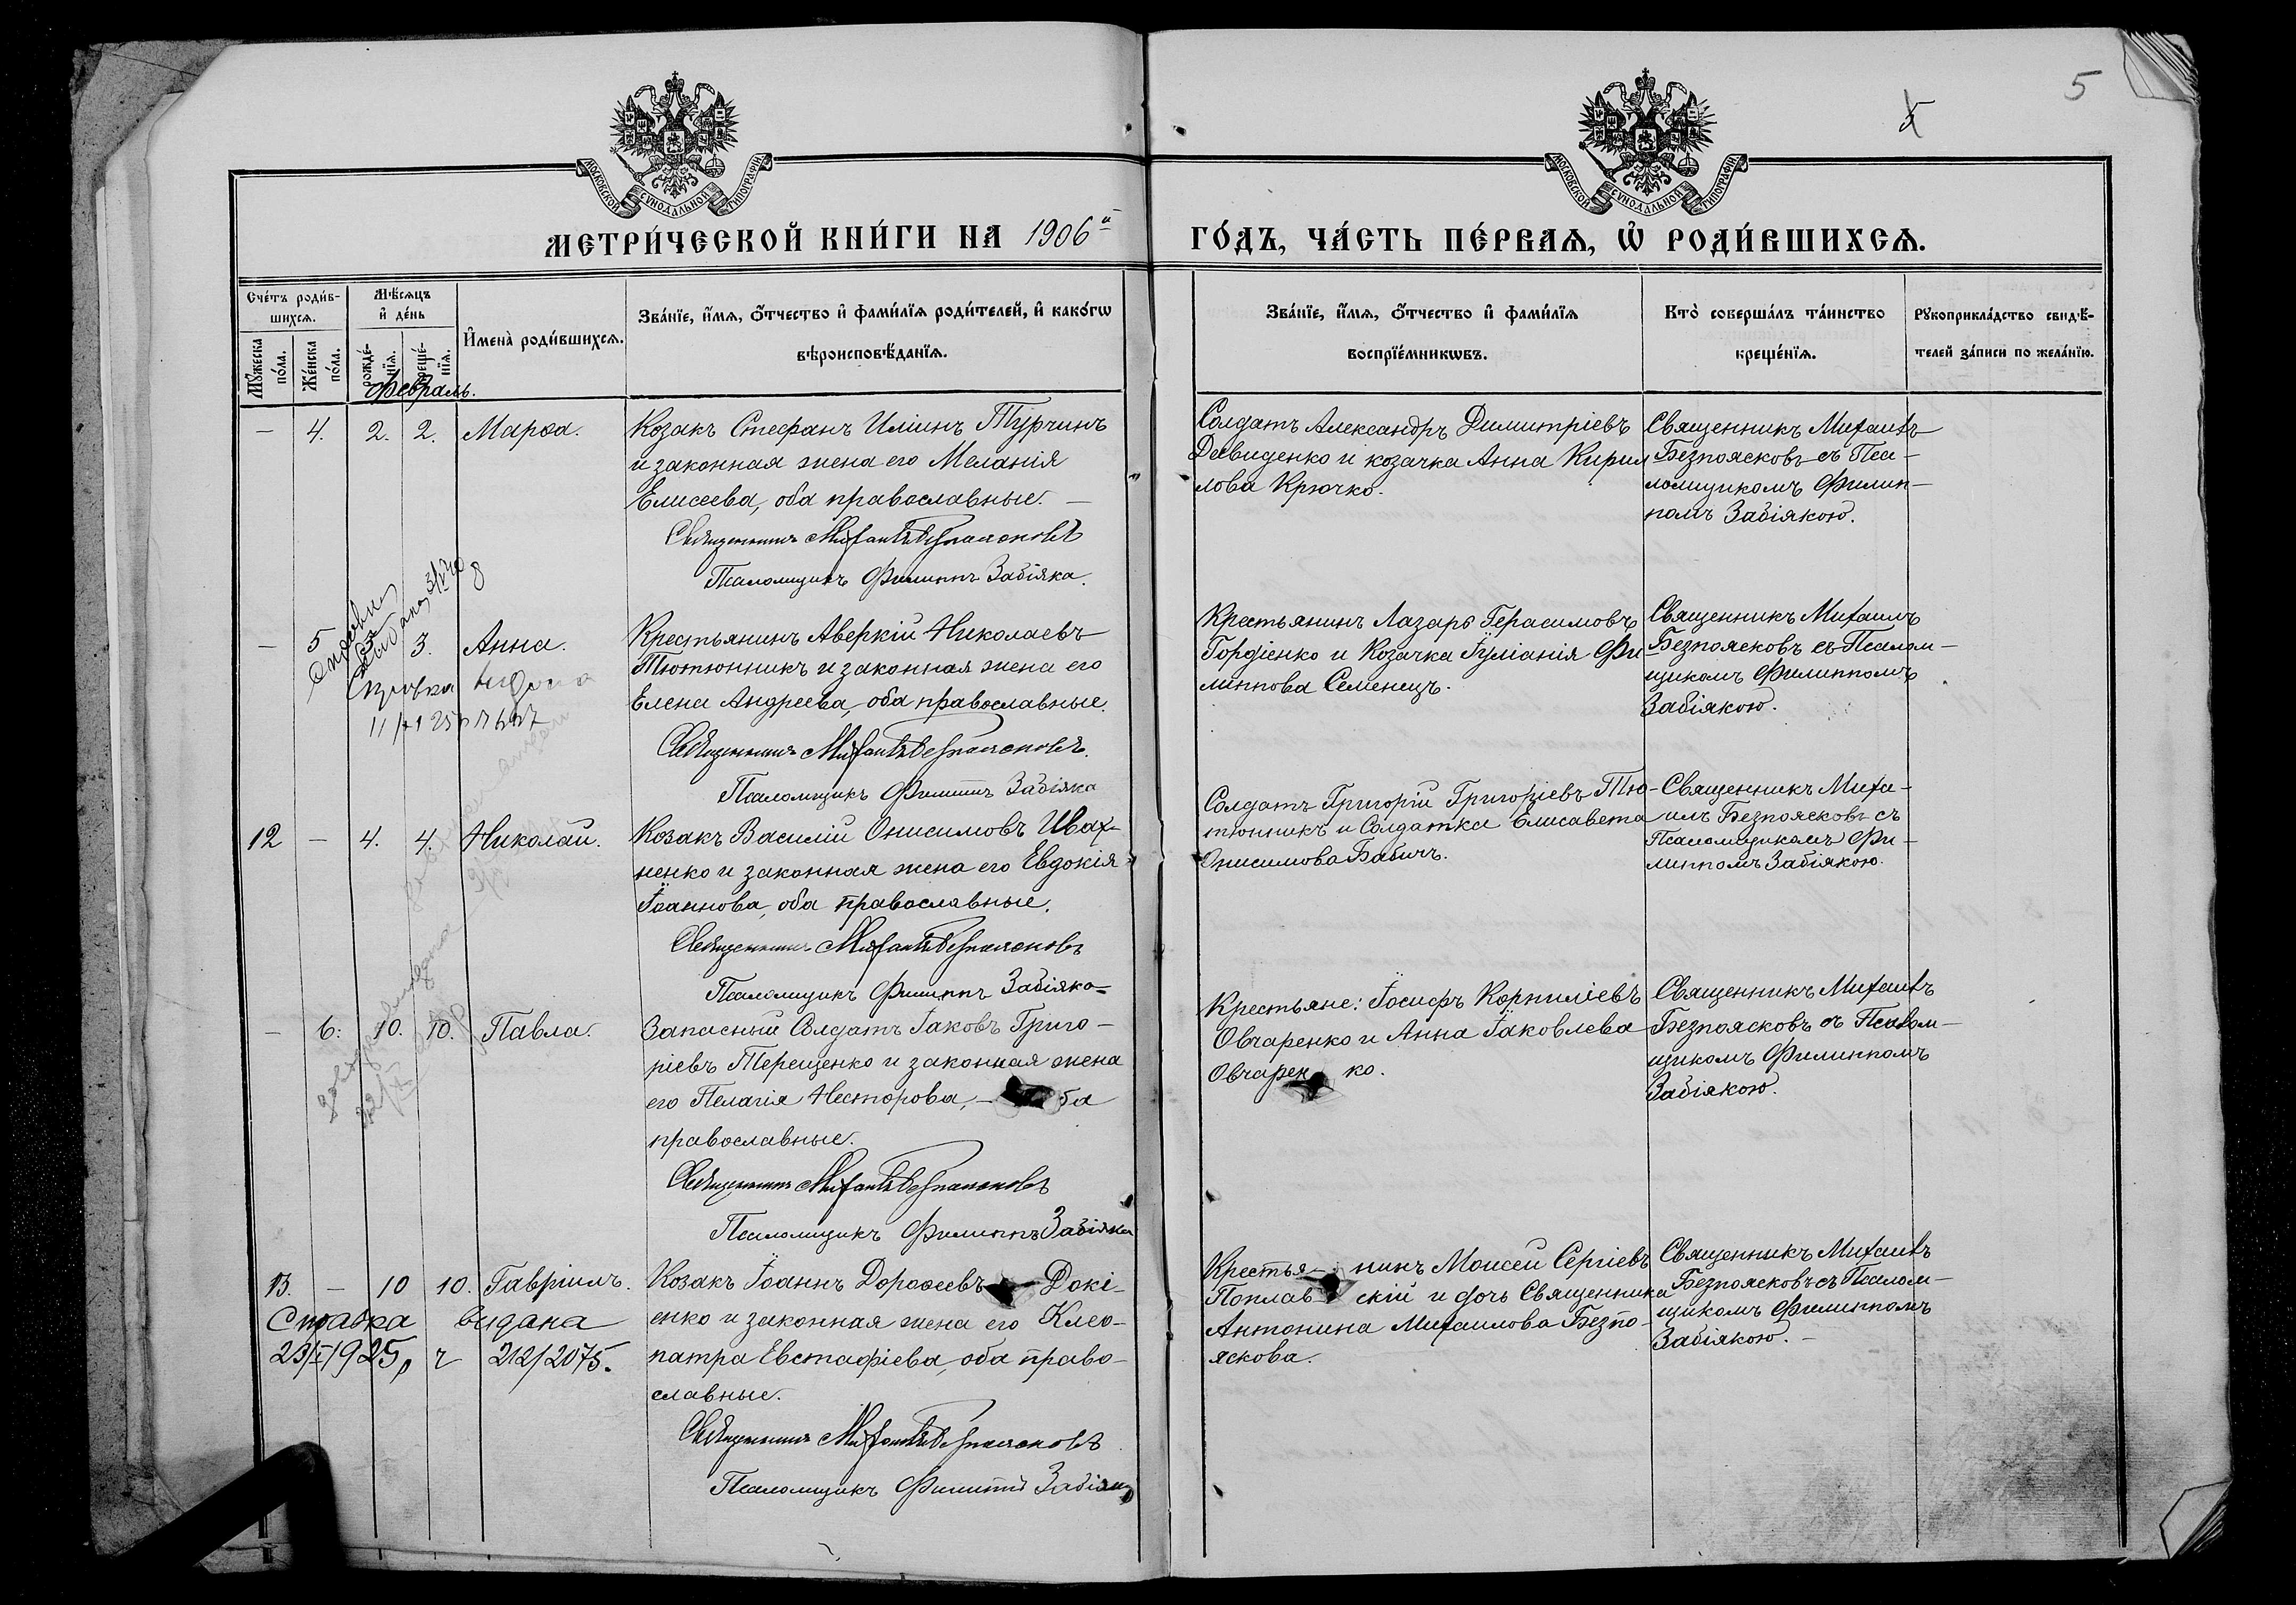 5
5
МОСКОВСКОЙ СѴНОДАЛЬНОЙ ТИПОГРАФІИ
МОСКОВСКОЙ СѴНОДАЛЬНОЙ ТИПОГРАФІИ
МЕТРИ́ЧЕСКОЙ КНИ́ГИ НА 1906й
ГО́ДЪ, ЧА́СТЬ ПЕ́РВАѦ, Ѡ҆ РОДИ́ВШИХСѦ.
Сче́тъ роди́в-
шихсѧ.
Мꙋ́жеска по́ла.
Же́нска по́ла.
Мѣ́сѧцъ
и҆ де́нь
рожде́-
нїѧ.
креще́-
нїѧ.
И҆мена̀ роди́вшихсѧ.
Зва́нїе, и҆́мѧ, ѻ҆́тчество и҆ фами́лїѧ роди́телей, и҆ како́гѡ
вѣроисповѣ́данїѧ.
Зва́нїе, и҆́мѧ, ѻ҆́тчество и҆ фами́лїѧ
воспрїе́мникѡвъ.
Кто̀ соверша́лъ та́инство
креще́нїѧ.
Рꙋкоприкла́дство свидѣ́-
телей за́писи по жела́нїю.
Февраль.
— 4. 2. 2. Марѳа.
Козакъ Стефанъ Иліинъ Турчинъ
и законная жена его Меланія
Елисеева, оба православные. —
Священникъ Михаилъ Безпоясковъ
Псаломщикъ Филиппъ Забіяка.
Солдатъ Александръ Димитріевъ
Давиденко и козачка Анна Кирил
лова Крючко.
Священникъ Михаилъ
Безпоясковъ съ Пса-
ломщикомъ Филип-
помъ Забіякою.
— 5 3. 3. Анна.
Справка видана
Крестьянинъ Аверкій Николаевъ
Тютюнникъ и законная жена его
Елена Андреева, оба православные.
Священникъ Михаилъ Безпоясковъ.
Псаломщикъ Филиппъ Забіяка
Крестьянинъ Лазарь Герасимовъ
Гордіенко и Козачка Іуліанія Фи-
липпова Семенецъ.
Священникъ Михаилъ
Безпоясковъ съ Псалом-
щикомъ Филиппомъ
Забіякою.
12 — 4. 4. Николай.
Козакъ Василій Онисимовъ Ивах-
ненко и законная жена его Евдокія
Іоаннова, оба православные.
Священникъ Михаилъ Безпоясковъ
Псаломщикъ Филиппъ Забіяка
Солдатъ Григорій Григоріевъ Тю-
тюнникъ и Солдатка Елисавета
Онисимова Бабичъ.
Священникъ Миха-
илъ Безпоясковъ съ
Псаломщикомъ Фи-
липпомъ Забіякою.
— 6. 10. 10. Павла.
Запасный Солдатъ Іаковъ Григо-
ріевъ Терещенко и законная жена
его Пелагія Несторова, — ба
православные.
Священникъ Михаилъ Безпоясковъ
Псаломщикъ Филиппъ Забіяка
Крестьяне: Іосифъ Корниліевъ
Овчаренко и Анна Іаковлева
Овчарен ко.
Священникъ Михаилъ
Безпоясковъ съ Псалом-
щикомъ Филиппомъ
Забіякою.
13. — 10 10. Гавріилъ.
Справка видана
23/X 1925 р ч 212/2075.
Козакъ Іоаннъ Дороѳеевъ Докі-
енко и законная жена его Клео-
патра Евстафіева, оба право-
славные.
Священникъ Михаилъ Безпоясковъ
Псаломщикъ Филиппъ Забіяка
Крестья- нинъ Моисей Сергіевъ
Поплав скій и дочь Священника
Антонина Михаилова Безпо-
яскова.
Священникъ Михаилъ
Безпоясковъ съ Псалом-
щикомъ Филиппомъ
Забіякою. —